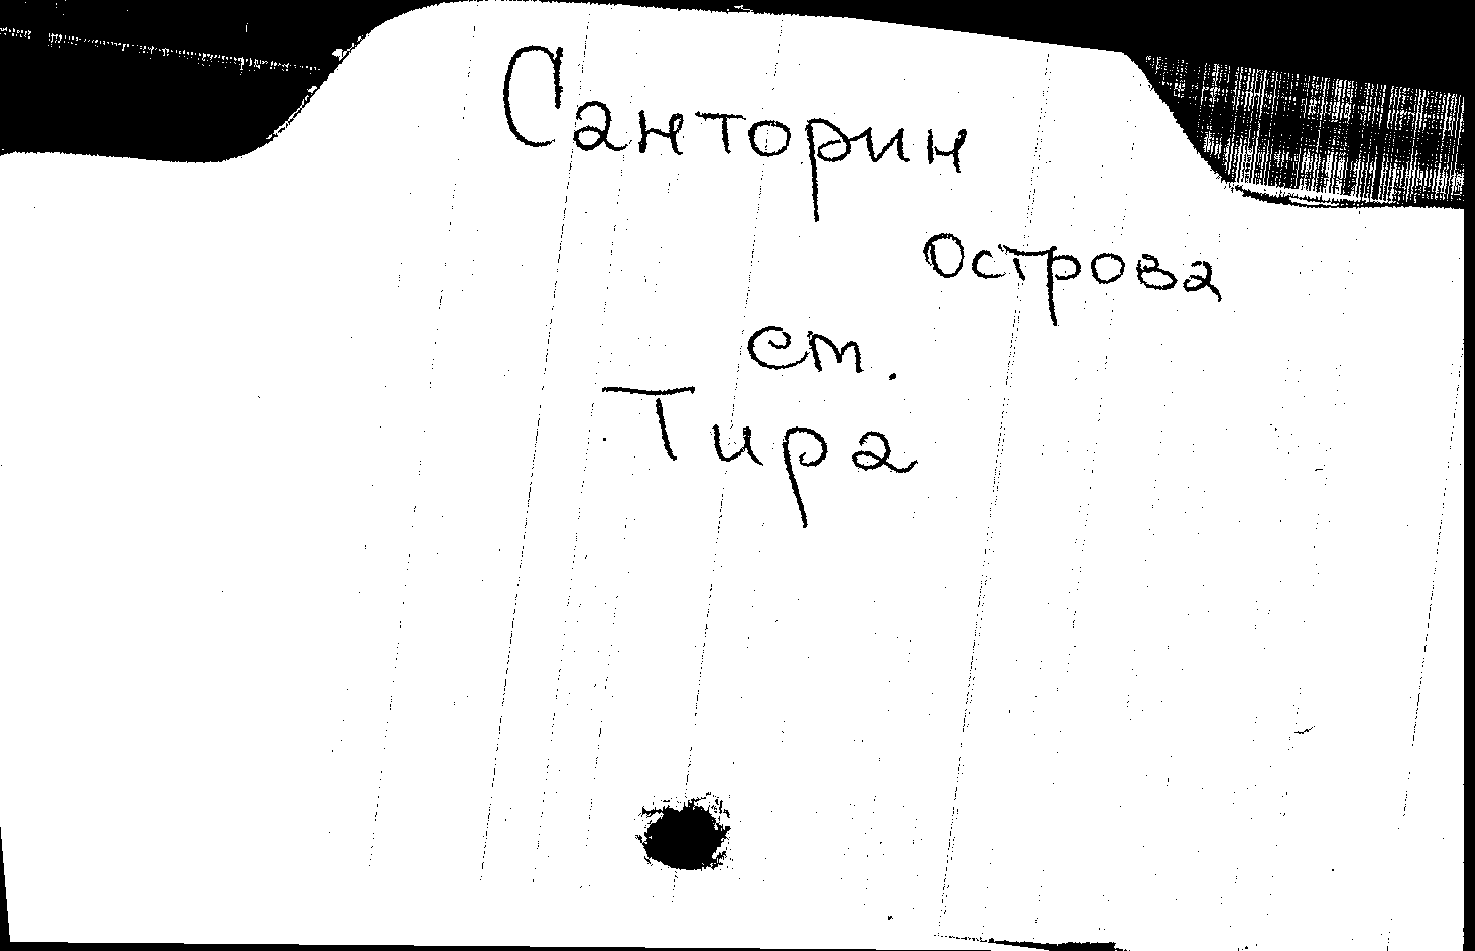 Санторин
острова
ст.
Тира